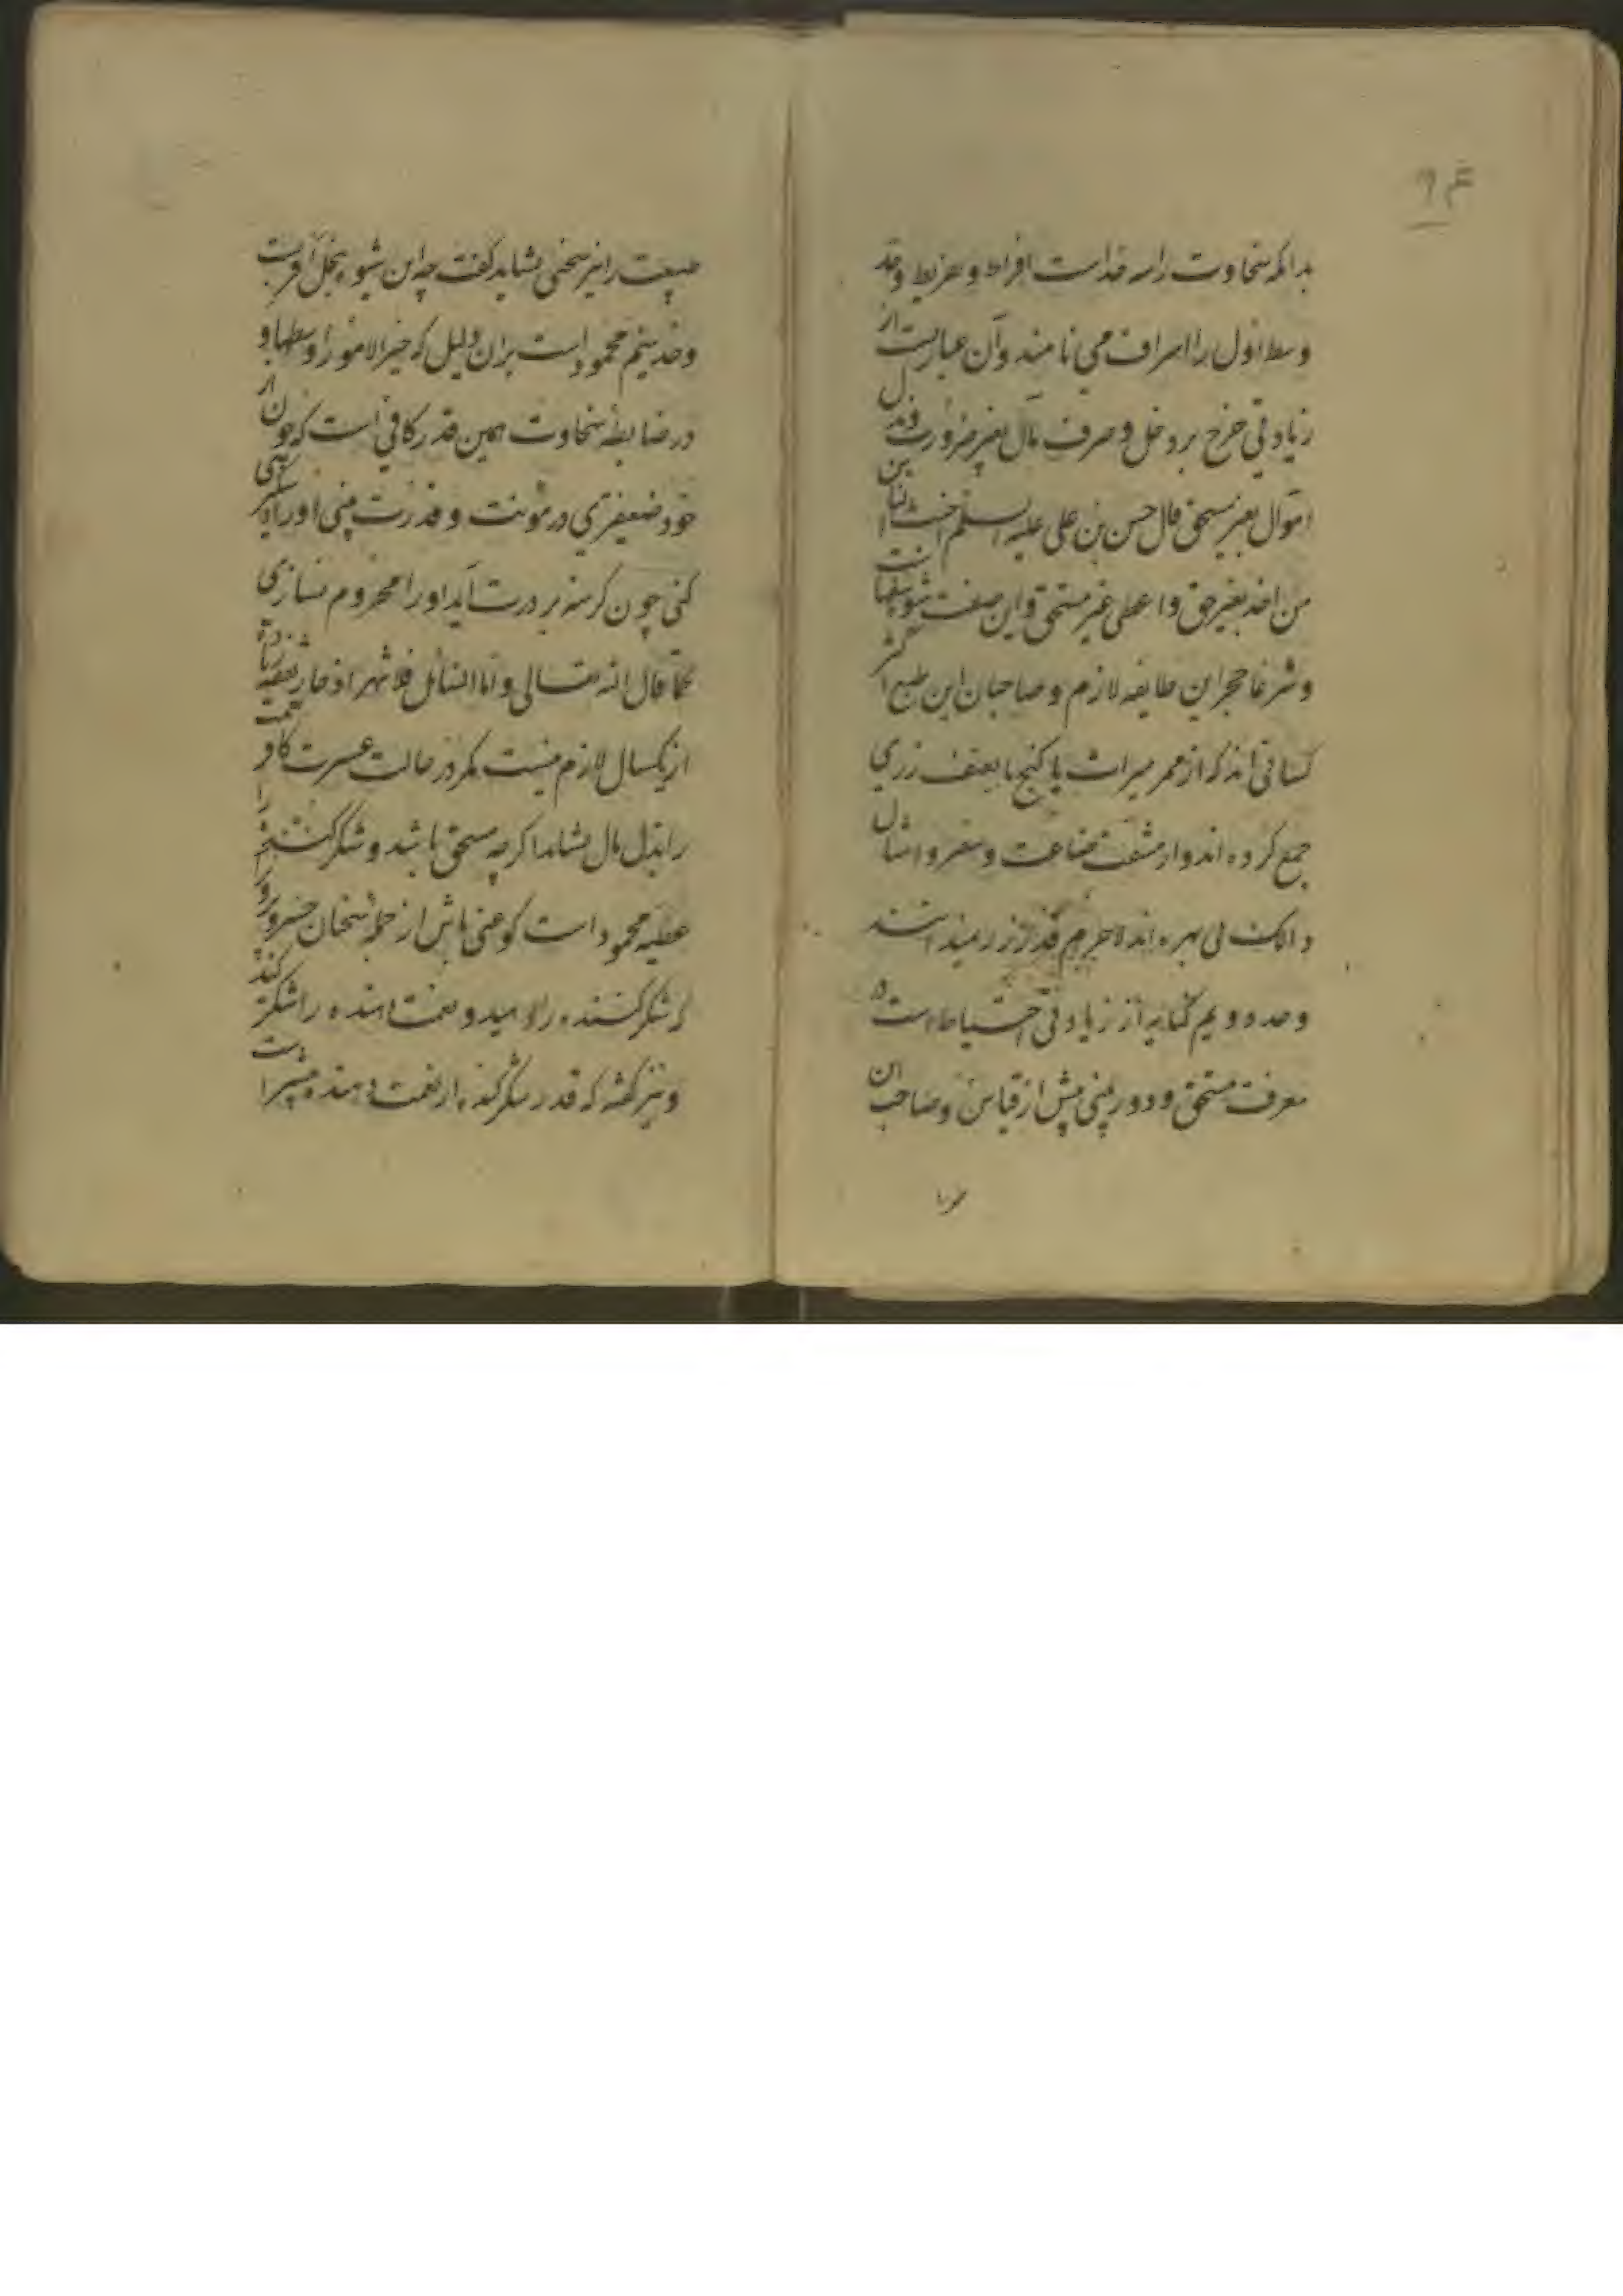 ۹۴
بدانکه سخاوت را سه حد است افراط و تفریط و حد
وسط اول را اسراف می نامند و آن عبارتست از
زیادتی خرج بر دخل و صرف مال بغیر ضرورت و بذل
اموال بغیر مستحق قال حسن بن علی علیه السلم اخث الناس
من اخذ بغیر حق و اعطی غیر مستحق و این صفت
و شرعا حجر این طایفه لازم و صاحبان این طبع اکثر
کسانی اند که از ممر میراث یا کنج یا بعنف زری
جمع کرده اند و از مشقت صناعت و سفر و امثال
ذالک بی بهره اند لاجرم قدر زر نمیدانند
و حد دویم کنایه از زیادتی احتیاط است در
معرفت مستحق و دوربینی بیش از قیاس و صاحب ان
طبیعت را نیز سخی نشاید کفت چه این شیوه ببخل اقربست
و حد سیم محمود است بران دلیل که خیر الامور اوسطها و
در ضابطه سخاوت همین قدر کافی است که چون از
خود ضعیفتری در مونت و قدرت بینی او را دستگیری
کنی چون کرسنه بر درت آید او را محروم نسازی
کما قال الله تعالی و اما السائل فلا تنهر اذخار نفقه زیاده
از یکسال لازم نیست مکر در حالت عسرت
را بذل مال نشاید اکرچه مستحق باشد و شکر کننده را
عطیه محمود است کو غنی باش از جمله سخنان خسرو
که شکر کننده را دهید و نعمت دهنده را شکر کنید
و نیز کفته که قدر شکر کننده از نعمت دهنده بیشتر است